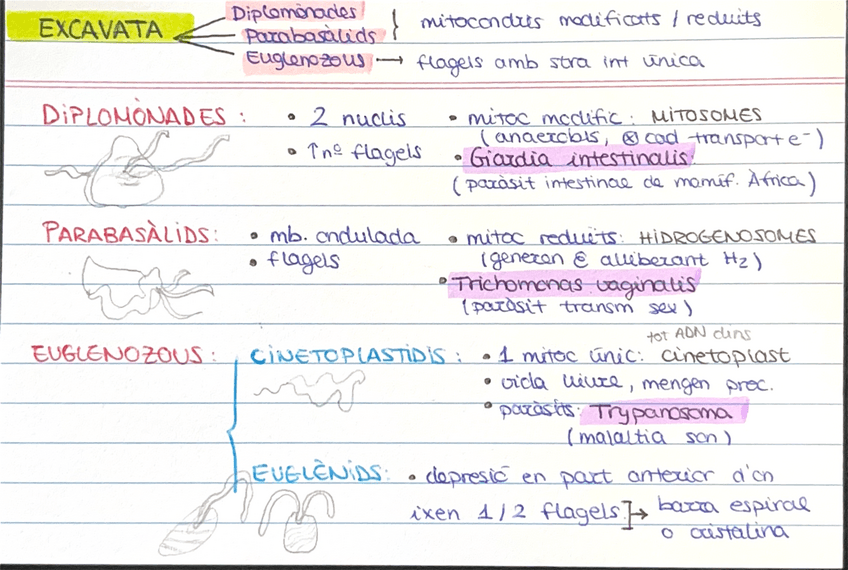 EXCAVATA
Diplomònades
Parabasàlids
mitocondris modificats / reduits
Euglenozous → flagels amb stra int única
DIPLOMÒNADES:
• 2 nuclis
• ↑nº flagels
• mitoc modific: MITOSOMES
(anaerobis, ⊗ cad transport e⁻)
• Giardia intestinalis
(paràsit intestinal de mamíf. Àfrica)
PARABASÀLIDS:
• mb. ondulada
• flagels
• mitoc reduits: HIDROGENOSOMES
(generen E alliberant H₂)
• Trichomonas vaginalis
(paràsit transm sex)
EUGLENOZOUS:
CINETOPLASTIDIS:
tot ADN dins
• 1 mitoc únic: cinetoplast
• vida lliure, mengen proc.
• paràsits: Trypanosoma
(malaltia son)
EUGLÈNIDS:
• depresió en part anterior d'on
ixen 1/2 flagels → barra espiral
o cristalina